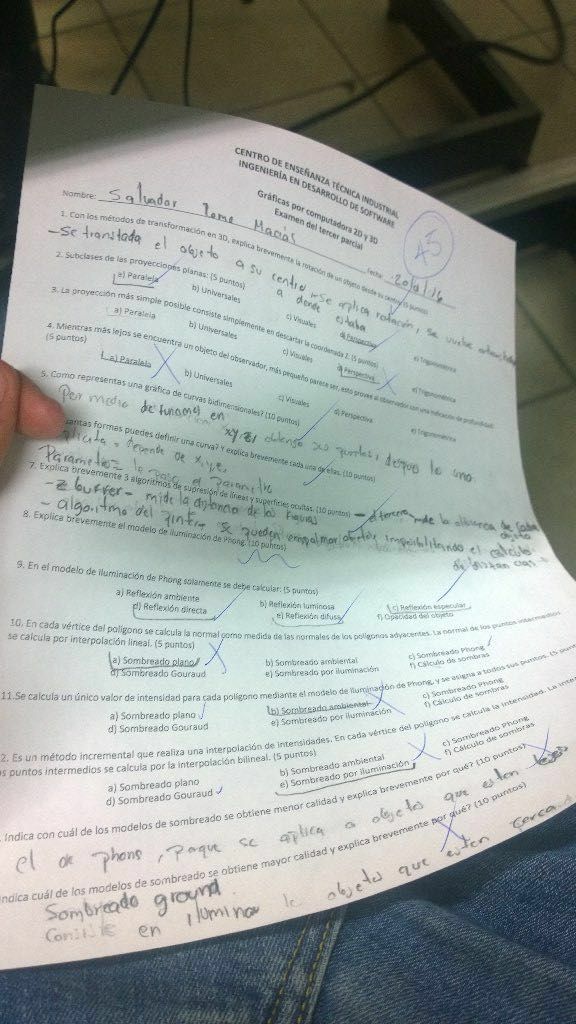 CENTRO DE ENSEÑANZA TÉCNICA INDUSTRIAL
INGENIERÍA EN DESARROLLO DE SOFTWARE
Gráficas por computadora 2D y 3D
Examen del tercer parcial
45
Nombre: Salvador Macías Fecha:
1. Con los métodos de transformación en 3D, explica brevemente la rotación de un objeto desde su centro (5 puntos)
-Se translada el objeto a su centro -se aplica rotación, se vuelve
a donde estaba
2. Subclases de las proyecciones planas: (5 puntos)
a) Paralela b) Universales c) Visuales d) Perspectiva e) Trigonométrica
3. La proyección más simple posible consiste simplemente en descartar la coordenada Z. (5 puntos)
a) Paralela b) Universales c) Visuales d) Perspectiva e) Trigonométrica
4. Mientras más lejos se encuentra un objeto del observador, más pequeño parece ser, esto provee al observador con una indicación de profundidad.
(5 puntos)
a) Paralela b) Universales c) Visuales d) Perspectiva e) Trigonométrica
5. Como representas una gráfica de curvas bidimensionales? (10 puntos)
Por medio de en obtengo puntos, lo
uantas formas puedes definir una curva? Y explica brevemente cada una de ellas. (10 puntos)
depende de x, y, z
7. Explica brevemente 3 algoritmos de supresión de líneas y superficies ocultas. (10 puntos)
- z buffer - mide la distancia de las figuras
- algoritmo del pintor se pueden empalmar objetos imposibilitando el calculo
de
8. Explica brevemente el modelo de iluminación de Phong. (10 puntos)
9. En el modelo de iluminación de Phong solamente se debe calcular: (5 puntos)
a) Reflexión ambiente b) Reflexión luminosa c) Reflexión especular
d) Reflexión directa e) Reflexión difusa f) Opacidad del objeto
10. En cada vértice del polígono se calcula la normal como medida de las normales de los polígonos adyacentes. La normal de los puntos intermedios
se calcula por interpolación lineal. (5 puntos)
a) Sombreado plano b) Sombreado ambiental c) Sombreado Phong
d) Sombreado Gouraud e) Sombreado por iluminación f) Cálculo de sombras
11.Se calcula un único valor de intensidad para cada polígono mediante el modelo de iluminación de Phong, y se asigna a todos sus puntos. (5
a) Sombreado plano b) Sombreado ambiental c) Sombreado Phong
d) Sombreado Gouraud e) Sombreado por iluminación f) Cálculo de sombras
2. Es un método incremental que realiza una interpolación de intensidades. En cada vértice del polígono se calcula la intensidad. La
s puntos intermedios se calcula por la interpolación bilineal. (5 puntos)
a) Sombreado plano b) Sombreado ambiental c) Sombreado Phong
d) Sombreado Gouraud e) Sombreado por iluminación f) Cálculo de sombras
. Indica con cuál de los modelos de sombreado se obtiene menor calidad y explica brevemente por qué? (10 puntos)
el de phong, paque se aplica a objetos que esten lejos
ndica cuál de los modelos de sombreado se obtiene mayor calidad y explica brevemente por qué? (10 puntos)
Sombreado ground
en ilumina objetos que esten cerca